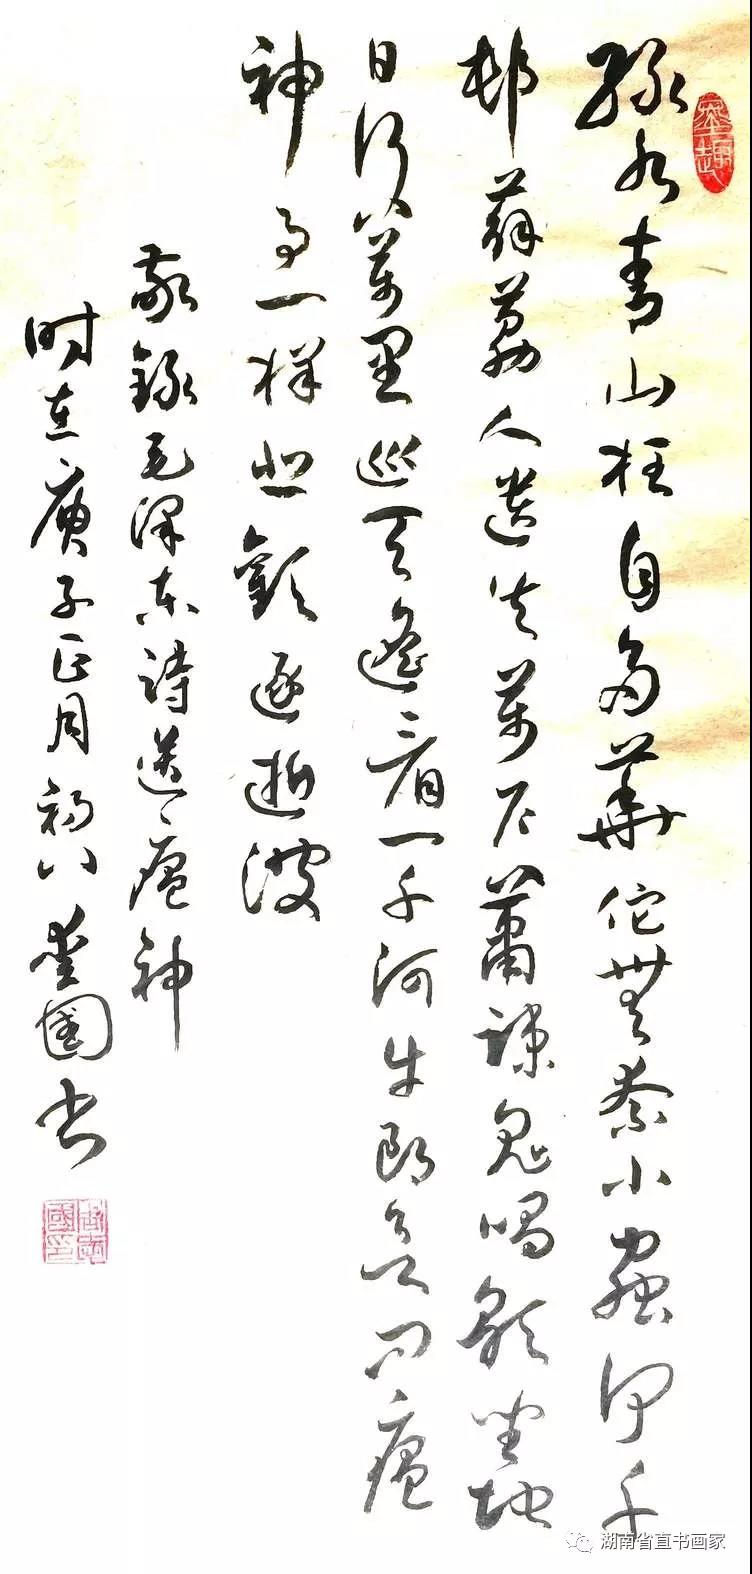 墨趣
绿水青山枉自多華佗無奈小蟲何千
邨薜荔人遺矢萬户蕭疎鬼唱歌坐地
日行八萬里巡天遥看一千河牛郎欲问瘟
神事一样悲歡逐逝波
敬錄毛泽东詩送瘟神
时在庚子正月初八愛國书
湖南省直书画家